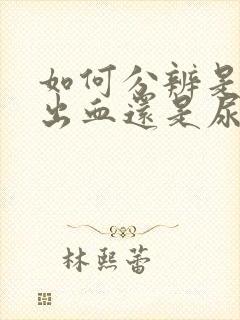 如何分辨是
出血還是尿
林熙蕾